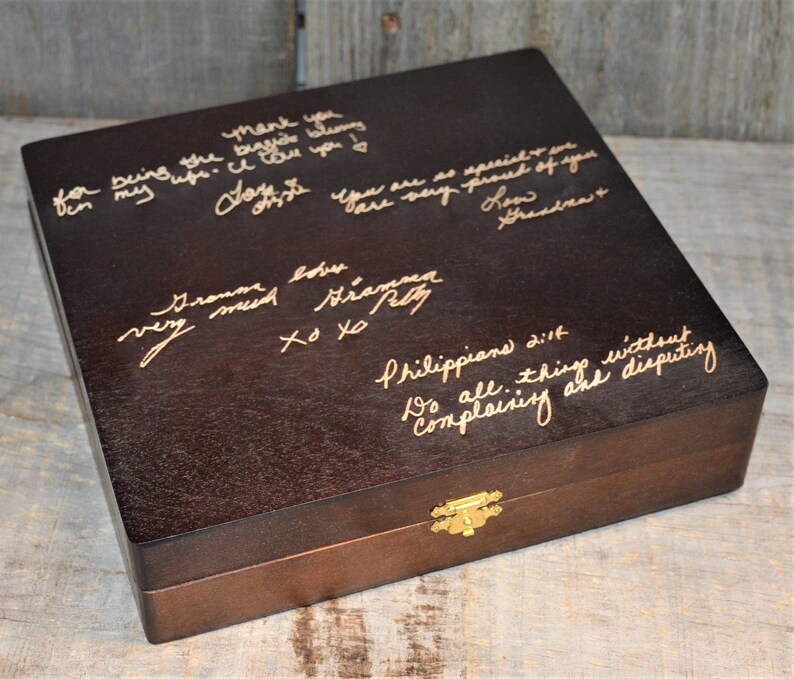 Thank you
for being the biggest blessing
in my life. I love you!
Love
You are so special & we
are very proud of you
Love
Grandma &
Gramma loves
very much
Gramma
Patty
XO XO
Philippians 2:14
Do all things without
complaining and disputing